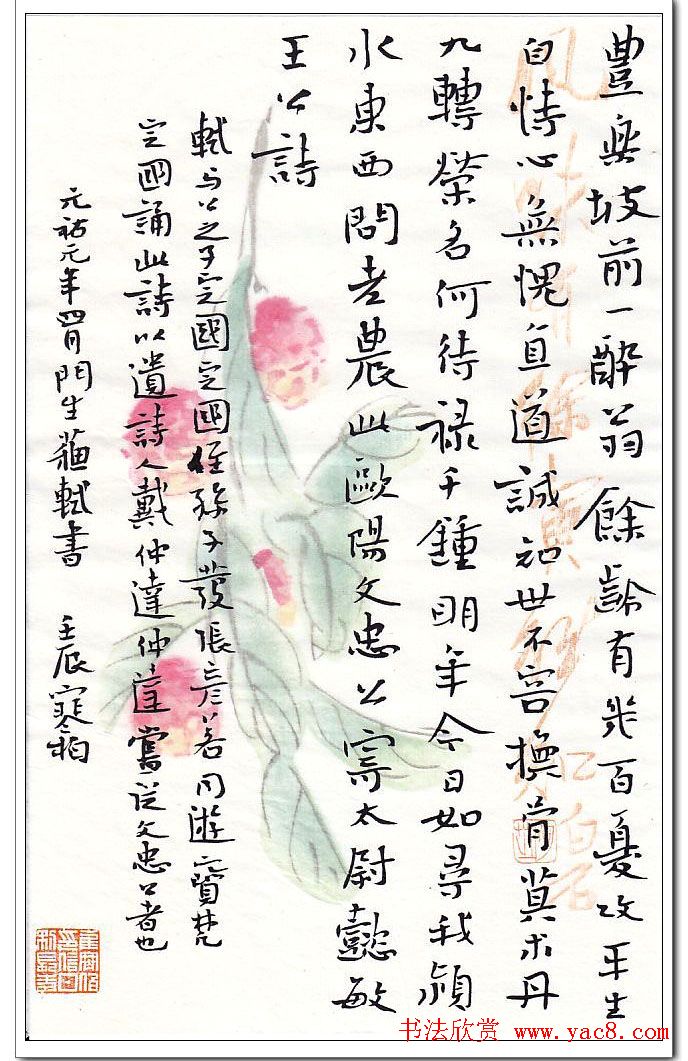 豐樂坡前一醉翁餘齡有幾百憂攻平生
自恃心無愧直道誠知世不容換骨莫求丹
九轉榮名何待祿千鍾明年今日如尋我潁
水東西問老農此歐陽文忠公寄太尉懿敏
王公詩
軾与公之子定國定國侄孫子發張彥若同遊寶梵
定國誦此詩以遺詩人戴仲達仲達嘗從文忠公者也
元祐元年四月門生蘇軾書 壬辰寒柏
书法欣赏 www.yac8.com